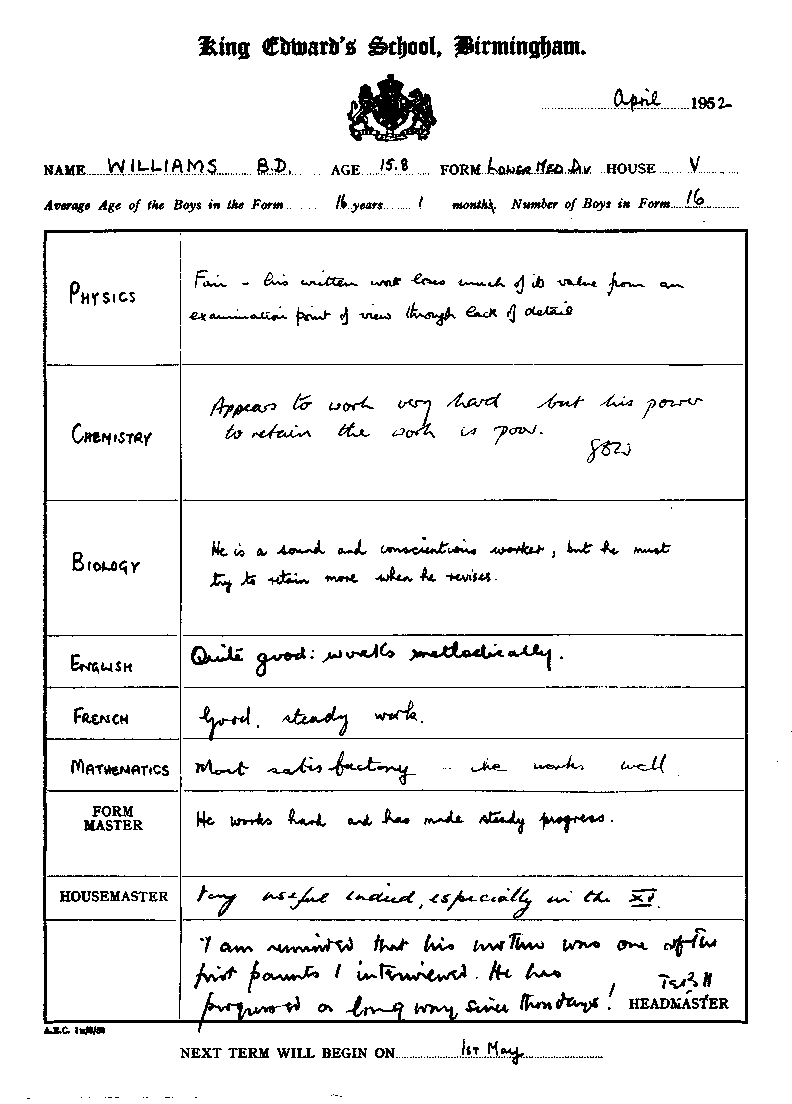 King Edward's School, Birmingham.
April 1952
NAME WILLIAMS B.D. AGE 15.8 FORM LOWER MED DIV HOUSE V
Average Age of the Boys in the Form 16 years 1 months, Number of Boys in Form 16
PHYSICS
Fair - his written work loses much of its value from an
examination point of view through lack of detail
CHEMISTRY
Appears to work very hard but his power
to retain the work is poor.
BIOLOGY
He is a sound and conscientious worker, but he must
try to retain more when he revises.
ENGLISH
Quite good: works methodically.
FRENCH
Good, steady work.
MATHEMATICS
Most satisfactory - he works well
FORM
MASTER
He works hard and has made steady progress.
HOUSEMASTER
Very useful indeed, especially in the XV.
I am reminded that his mother was one of the
first parents I interviewed. He has
progressed a long way since those days!
HEADMASTER
NEXT TERM WILL BEGIN ON 1ST May